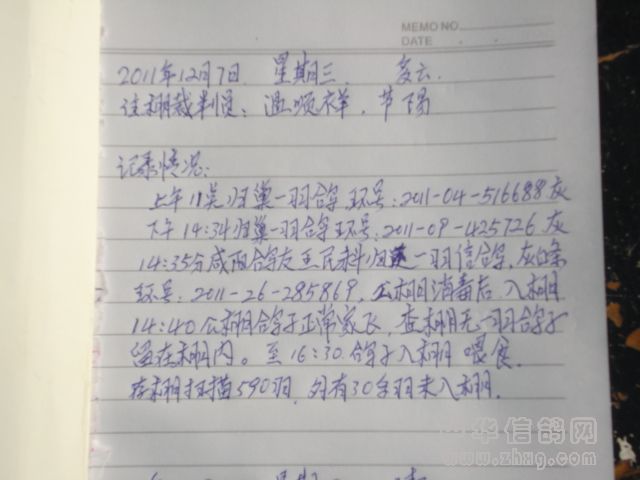 MEMO NO.
DATE . .
2011年12月7日 星期三. 多云.
住棚裁判员：温顺祥、节阳
记录情况：
上午11点归巢一羽鸽，环号：2011-04-516688灰
下午14:34归巢一羽鸽环号：2011-09-425726灰
14:35分咸阳鸽友王民科归巢一羽信鸽，灰白条
环号：2011-26-285869，公棚消毒后入棚
14:40公棚鸽子正常家飞，查棚无一羽鸽子
留在棚内。至16:30.鸽子入棚 喂食.
存棚扫描590羽，外有30多羽未入棚.
中华信鸽网
www.zhxg.com